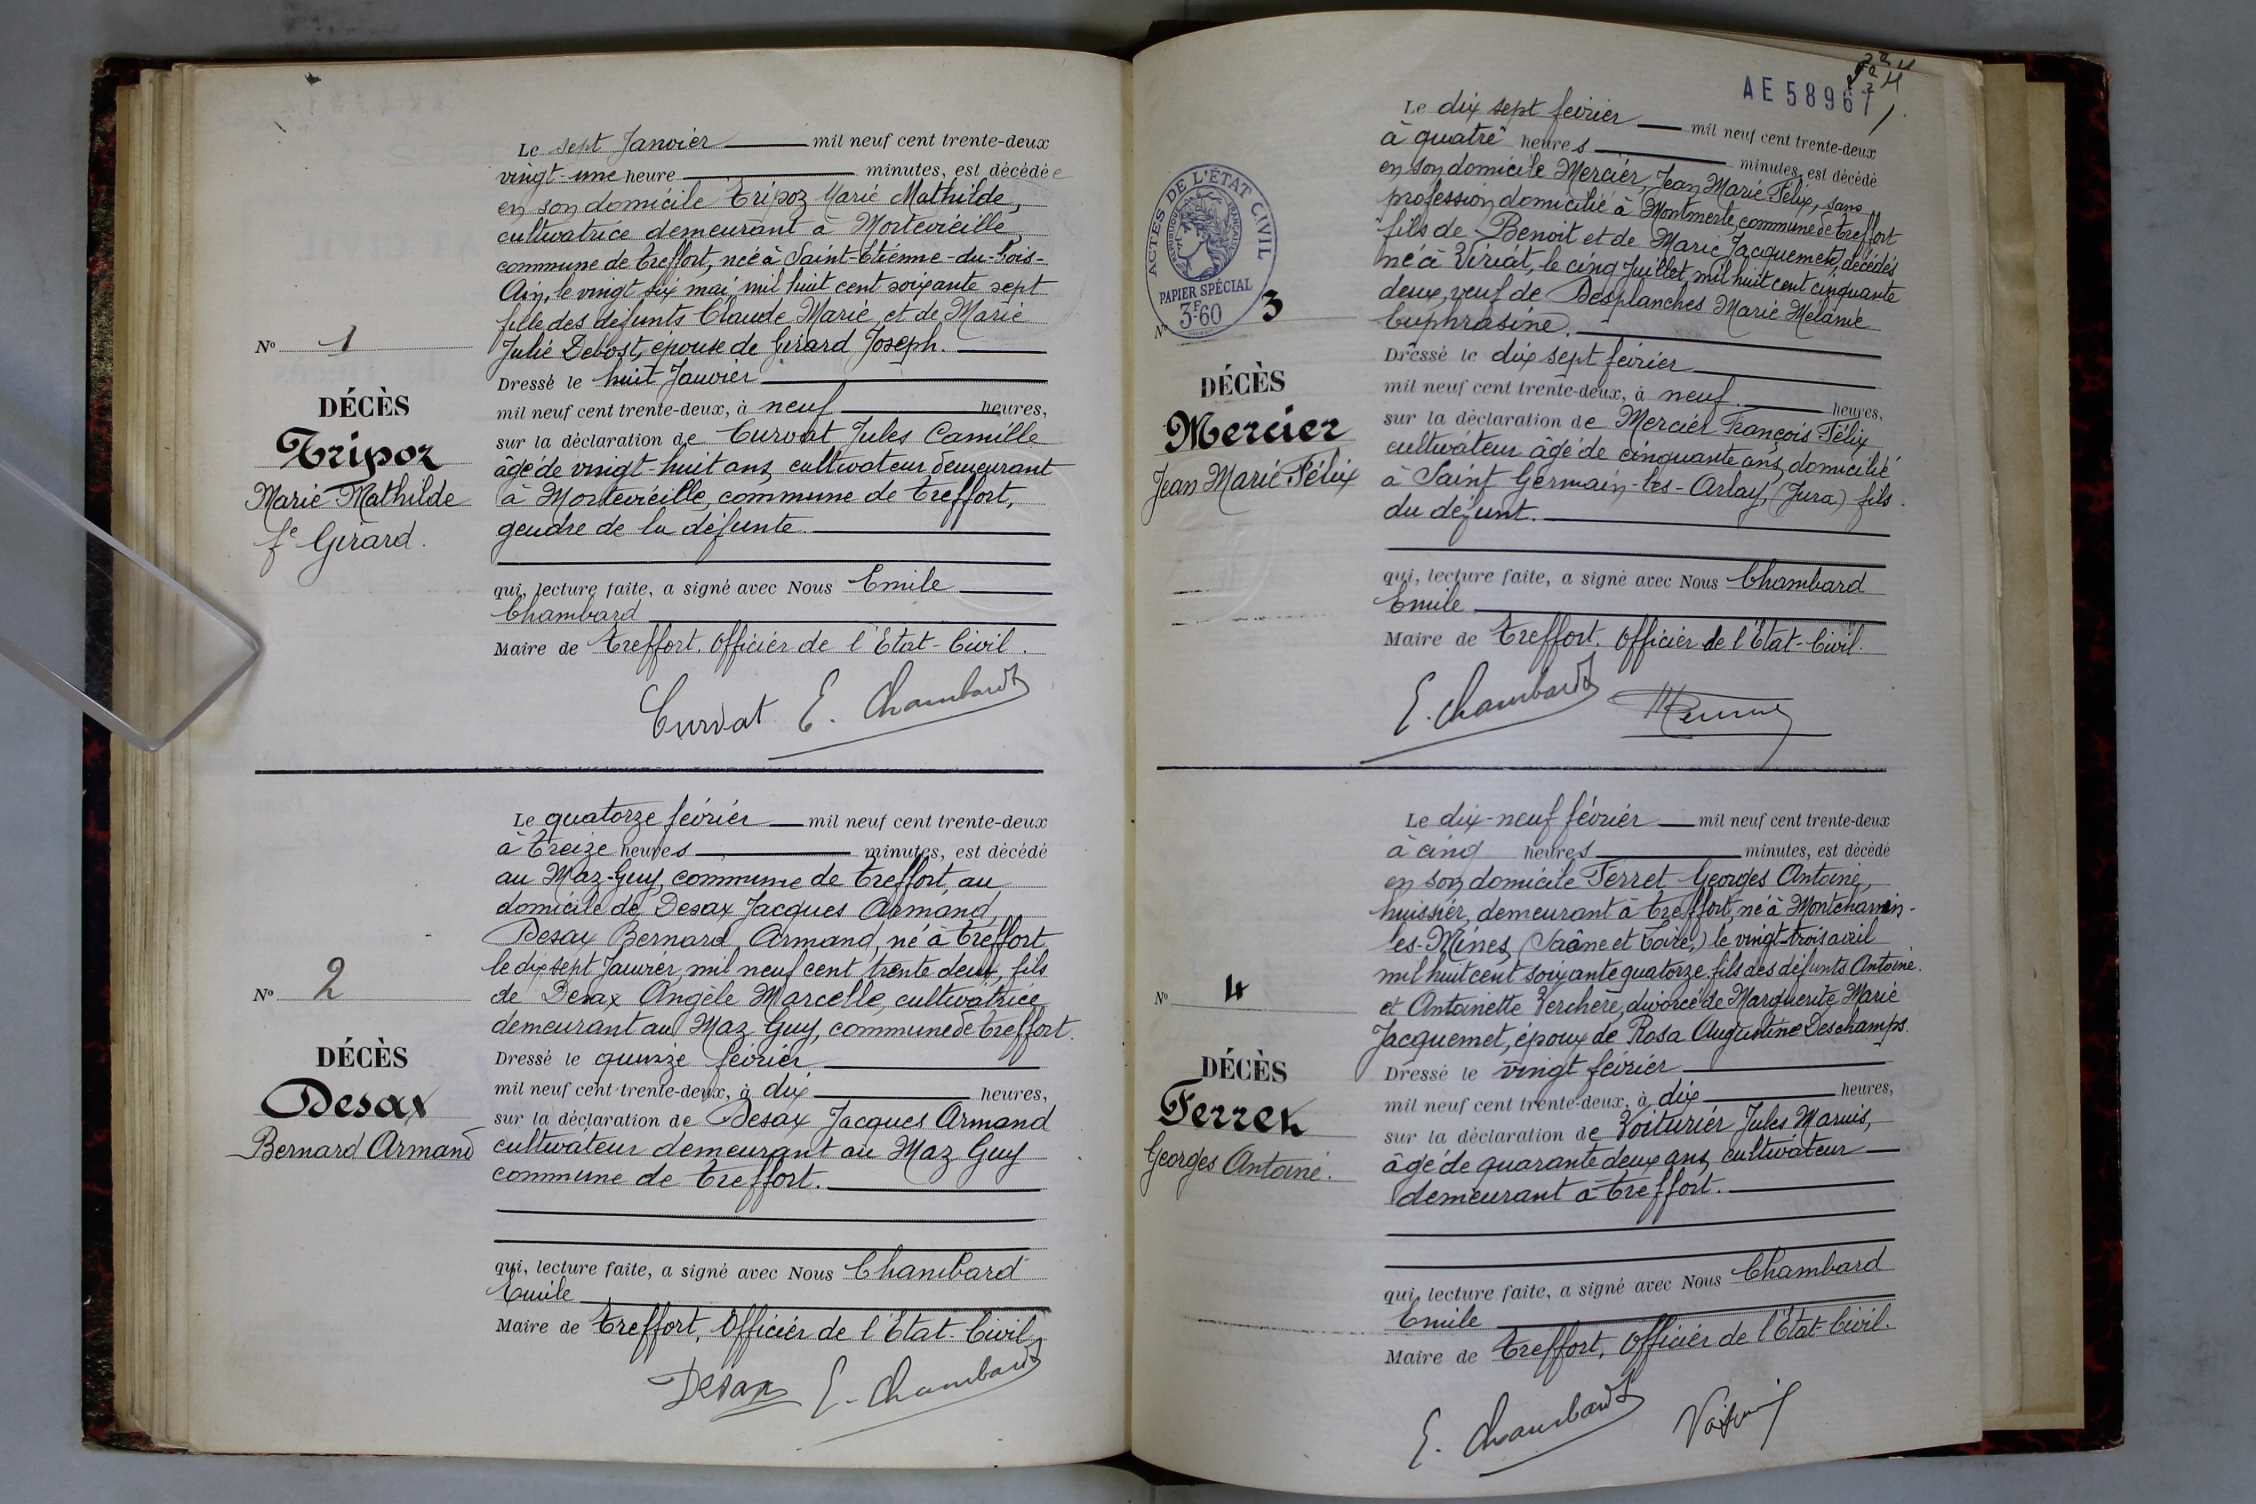 Le sept Janvier mil neuf cent trente-deux
vingt-une heure minutes, est décédée
en son domicile Tripoz Marie Mathilde,
cultivatrice demeurant à Montevieille,
commune de Treffort, née à Saint-Etienne-du-Bois-
Ain, le vingt six mai, mil huit cent soixante sept
fille des défunts Claude Marie, et de Marie
Julie Debost, épouse de Girard Joseph.
Nº 1
Dressé le huit Janvier
DÉCÈS
mil neuf cent trente-deux, à neuf heures,
Tripoz
sur la déclaration de Curvat Jules Camille
âgé de vingt-huit ans, cultivateur demeurant
Marie Mathilde
à Montevieille, commune de Treffort,
fe Girard.
gendre de la défunte.
qui, lecture faite, a signé avec Nous Emile
Chambard
Maire de Treffort, Officier de l'Etat-Civil.
Curvat E. Chambard
Le quatorze février mil neuf cent trente-deux
à treize heures minutes, est décédé
au Maz-Guy, commune de Treffort, au
domicile de Desax Jacques Armand,
Desax Bernard, Armand, né à Treffort
le dix sept Janvier, mil neuf cent trente deux, fils
Nº 2
de Desax Angèle Marcelle, cultivatrice
demeurant au Maz Guy, commune de Treffort.
DÉCÈS
Dressé le quinze février
mil neuf cent trente-deux, à dix heures,
Desax
sur la déclaration de Desax Jacques Armand
Bernard Armand
cultivateur demeurant au Maz Guy
commune de Treffort.
qui, lecture faite, a signé avec Nous Chambard
Emile
Maire de Treffort, Officier de l'Etat-Civil
Desax E. Chambard
AE 58967
Le dix sept février mil neuf cent trente-deux
à quatre heures minutes, est décédé
en son domicile Mercier, Jean Marie Félix, sans
profession domicilié à Montmerle, commune de Treffort
fils de Benoit et de Marie Jacquemet, décédés
né à Viriat, le cinq Juillet mil huit cent cinquante
deux, veuf de Desplanches Marie Mélanie
Euphrasine.
ACTES DE L'ÉTAT CIVIL
RÉPUBLIQUE FRANÇAISE
PAPIER SPÉCIAL
3F60
Nº 3
Dressé le dix sept février
DÉCÈS
mil neuf cent trente-deux, à neuf heures,
Mercier
sur la déclaration de Mercier François Félix
cultivateur âgé de cinquante ans, domicilié
Jean Marie Félix
à Saint Germain-les-Arlay, (Jura) fils
du défunt.
qui, lecture faite, a signé avec Nous Chambard
Emile
Maire de Treffort, Officier de l'Etat-Civil.
E. Chambard
Le dix-neuf février mil neuf cent trente-deux
à cinq heures minutes, est décédé
en son domicile Ferret Georges Antoine,
huissier, demeurant à Treffort, né à Montchanin-
les-Mines, (Saône et Loire,) le vingt-trois avril
mil huit cent soixante quatorze, fils des défunts Antoine
Nº 4
et Antoinette Verchère, divorcé de Marguerite Marie
Jacquemet, époux de Rosa Augustine Deschamps.
DÉCÈS
Dressé le vingt février
mil neuf cent trente-deux, à dix heures,
Ferret
sur la déclaration de Voiturier Jules Marius,
Georges Antoine.
âgé de quarante deux ans, cultivateur
demeurant à Treffort.
qui, lecture faite, a signé avec Nous Chambard
Emile
Maire de Treffort, Officier de l'Etat-Civil.
E. Chambard